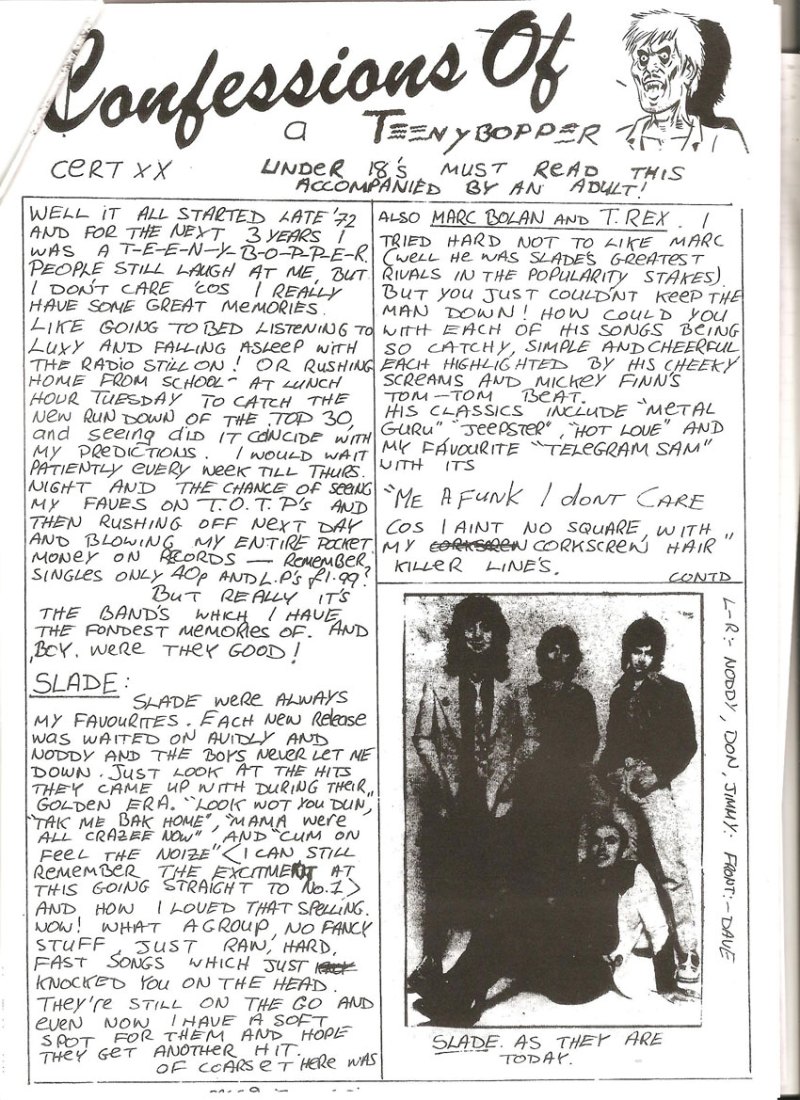 Confessions Of
a TEENYBOPPER
CERT XX
UNDER 18'S MUST READ THIS
ACCOMPANIED BY AN ADULT!
WELL IT ALL STARTED LATE '72
AND FOR THE NEXT 3 YEARS I
WAS A T-E-E-N-Y-B-O-P-P-E-R.
PEOPLE STILL LAUGH AT ME, BUT
I DON'T CARE 'COS I REALLY
HAVE SOME GREAT MEMORIES.
LIKE GOING TO BED LISTENING TO
LUXY AND FALLING ASLEEP WITH
THE RADIO STILL ON! OR RUSHING
HOME FROM SCHOOL- AT LUNCH
HOUR TUESDAY TO CATCH THE
NEW RUN DOWN OF THE TOP 30,
and seeing did IT COINCIDE WITH
MY PREDICTIONS. I WOULD WAIT
PATIENTLY EVERY WEEK TILL THURS.
NIGHT AND THE CHANCE OF SEEING
MY FAVES ON T.O.T.P's AND
THEN RUSHING OFF NEXT DAY
AND BLOWING MY ENTIRE POCKET
MONEY ON RECORDS — REMEMBER
SINGLES ONLY 40p AND L.P's £1.99?
BUT REALLY IT'S
THE BAND'S WHICH I HAVE
THE FONDEST MEMORIES OF. AND
BOY. WERE THEY GOOD!
SLADE:
SLADE WERE ALWAYS
MY FAVOURITES. EACH NEW Release
WAS WAITED ON AVIDLY AND
NODDY AND THE BOYS NEVER LET ME
DOWN. JUST LOOK AT THE HITS
THEY CAME UP WITH DURING THEIR
GOLDEN ERA. "LOOK WOT YOU DUN,"
"TAK ME BAK HOME", "MAMA WERE
ALL CRAZEE NOW" AND "CUM ON
FEEL THE NOIZE" <I CAN STILL
REMEMBER THE EXCITMENT AT
THIS GOING STRAIGHT TO No.1>
AND HOW I LOVED THAT SPELLING.
NOW! WHAT A GROUP, NO FANCY
STUFF, JUST RAW, HARD,
FAST SONGS WHICH JUST
KNOCKED YOU ON THE HEAD.
THEY'RE STILL ON THE GO AND
EVEN NOW I HAVE A SOFT
SPOT FOR THEM AND HOPE
THEY GET ANOTHER HIT.
OF COARSE THERE WAS
ALSO MARC BOLAN AND T. REX. I
TRIED HARD NOT TO LIKE MARC
(WELL HE WAS SLADE'S GREATEST
RIVALS IN THE POPULARITY STAKES).
BUT YOU JUST COULDN'T KEEP THE
MAN DOWN! HOW COULD YOU
WITH EACH OF HIS SONGS BEING
SO CATCHY, SIMPLE AND CHEERFUL
EACH HIGHLIGHTED BY HIS CHEEKY
SCREAMS AND MICKEY FINN'S
TOM-TOM BEAT.
HIS CLASSICS INCLUDE "METAL
GURU" "JEEPSTER", "HOT LOVE" AND
MY FAVOURITE "TELEGRAM SAM"
WITH ITS
"ME A FUNK I dONT CARE
COS I AINT NO SQUARE, WITH
MY CORKSCREW HAIR"
KILLER LINE'S.
CONTD
L-R:- NODDY, DON, JIMMY. FRONT:- DAVE
SLADE. AS THEY ARE
TODAY.